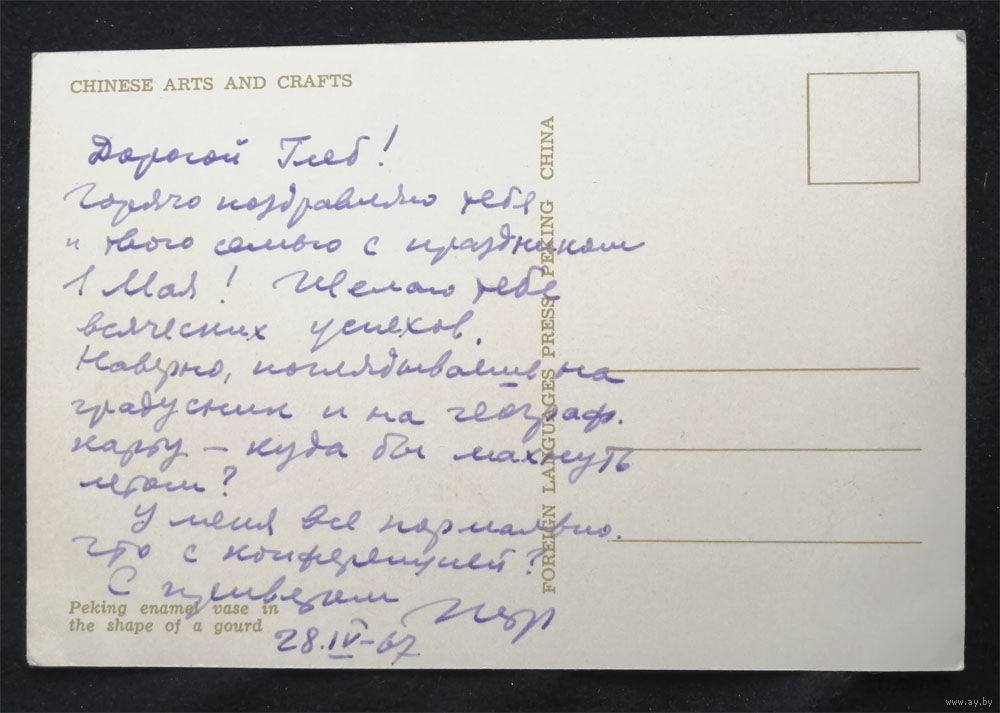 CHINESE ARTS AND CRAFTS
Дорогой Глеб!
Горячо поздравляю тебя
и твою семью с праздником
1 Мая! Желаю тебе
всяческих успехов.
Наверно, поглядываешь на
градусник и на географ.
карту – куда бы махнуть
летом?
У меня все нормально.
Что с конференцией?
С приветом
28.IV-67
Peking enamel vase in
the shape of a gourd
FOREIGN LANGUAGES PRESS PEKING CHINA
www.ay.by